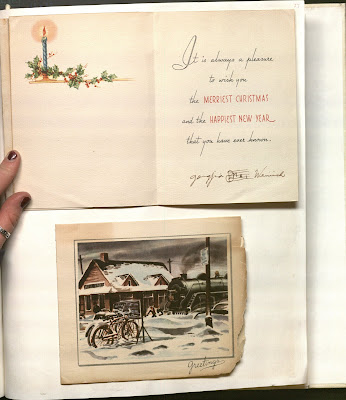 It is always a pleasure
to wish you
the MERRIEST CHRISTMAS
and the HAPPIEST NEW YEAR
that you have ever known.
Greetings